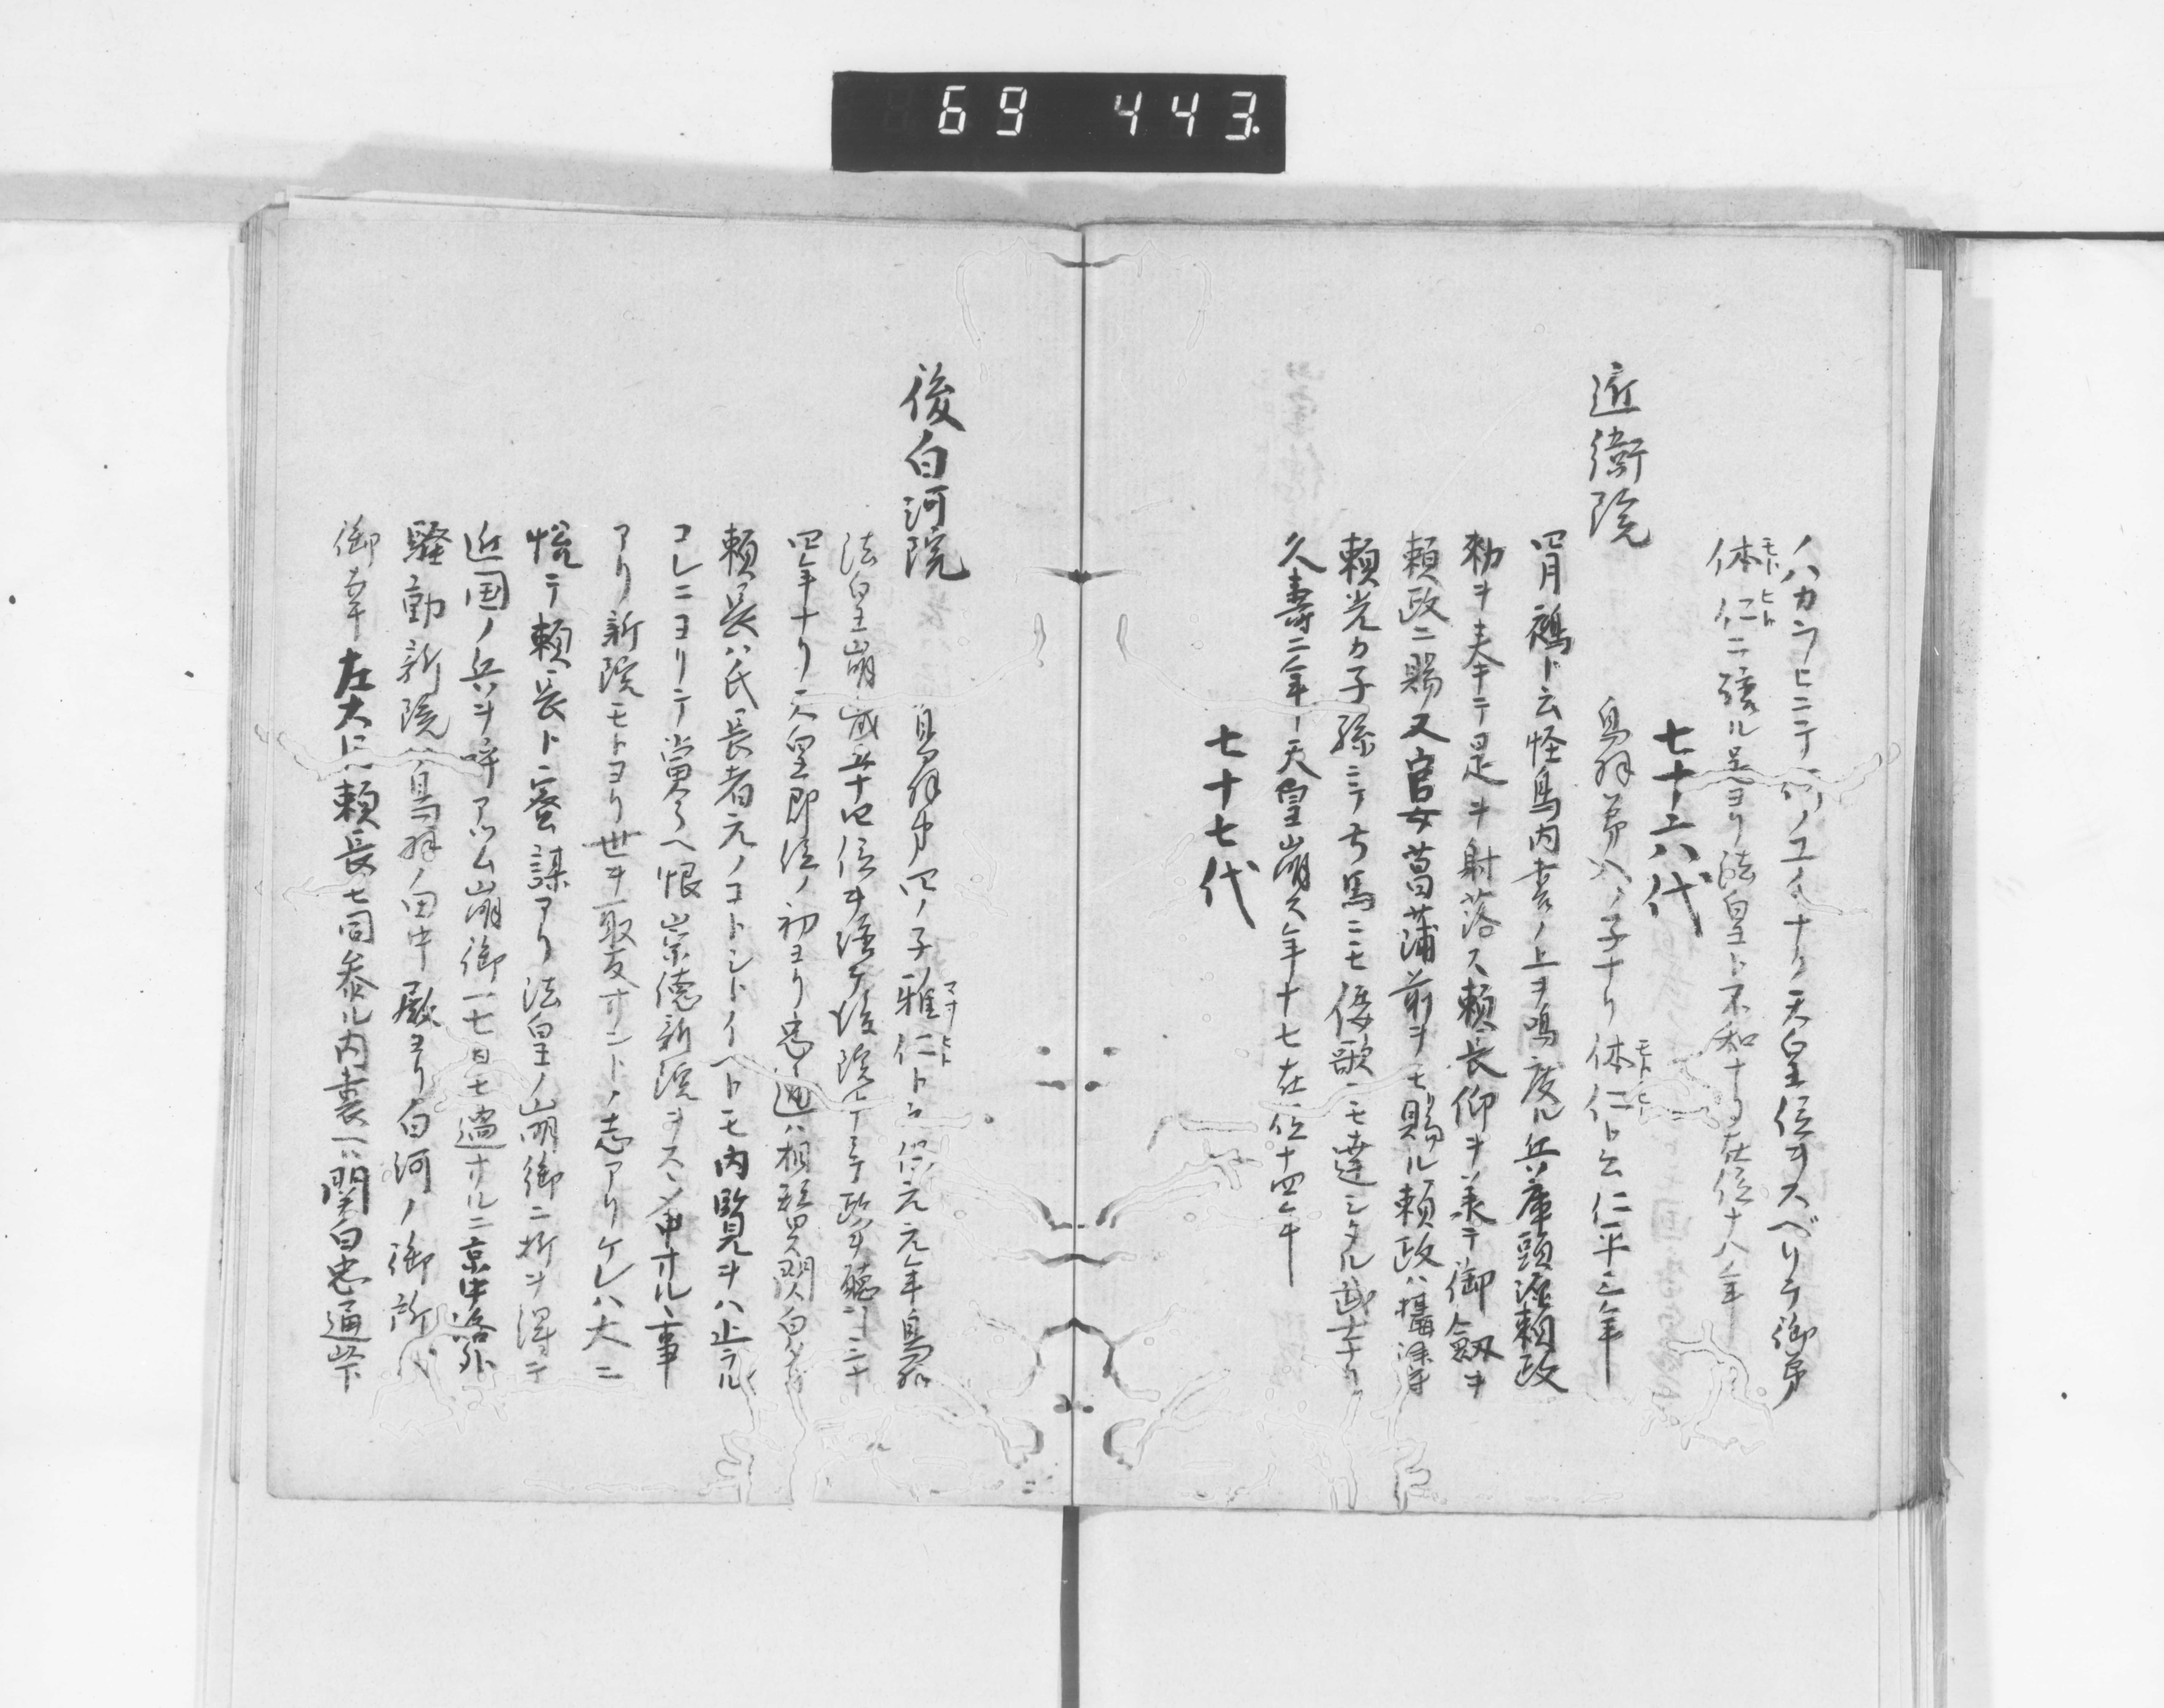 69 443
ノハカラヒニテ何ノユヘナク天皇位ヲスベリテ御弟
体仁ニ譲ル是ヨリ法皇ト不和ナリ在位十八年
モト ヒト
七十六代
近衛院
鳥羽第八ノ子ナリ体仁ト云仁平三年
モト ヒト
四月鵺ト云怪鳥内裏ノ上ヲ鳴度ル兵庫頭源頼政
勅ヲ奉テ是ヲ射落ス頼長仰ヲ承テ御劔ヲ
頼政ニ賜又官女菖蒲前ヲモ賜ル頼政ハ摂津守
頼光カ子孫ニテ弓馬ニモ倭歌ニモ達シタル武士ナリ
久壽二年天皇崩ス年十七在位十四年
七十七代
後白河院
鳥羽第四ノ子雅仁ト云保元元年鳥羽
マサ ヒト
法皇崩歳五十四位ヲ譲テ後院中ニテ政ヲ聴コト二十
四年ナリ天皇即位ノ初ヨリ忠通ハ相替ラス関白タリ
頼長ハ氏長者元ノコトシトイヘトモ内覧ヲハ止ラル
コレニヨリテ當今ヘ恨崇徳新院ヲスヽメ申サルヽ事
アリ新院モトヨリ世ヲ取反サントノ志アリケレハ大ニ
悦テ頼長ト密謀アリ法皇ノ崩御ニ折ヲ得テ
近国ノ兵ヲ呼アツム崩御一七日モ過サルニ京中洛外
騒動新院ハ鳥羽ノ田中殿ヨリ白河ノ御所ヘ
御幸左大臣頼長モ同参ル内裏ヘハ関白忠通以下